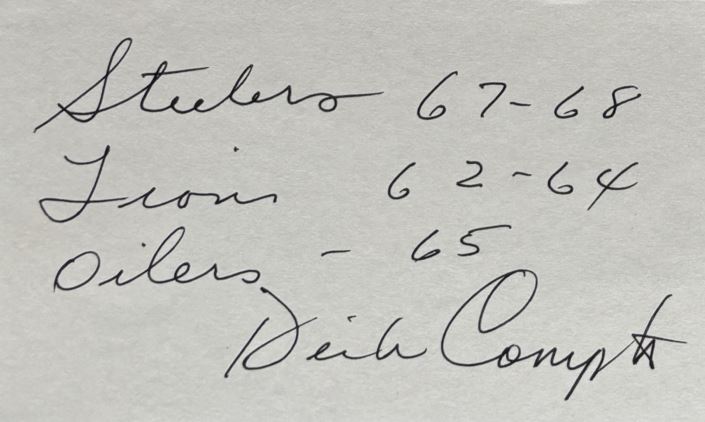 Steelers 67-68
Lions 62-64
Oilers - 65
Dick Compton